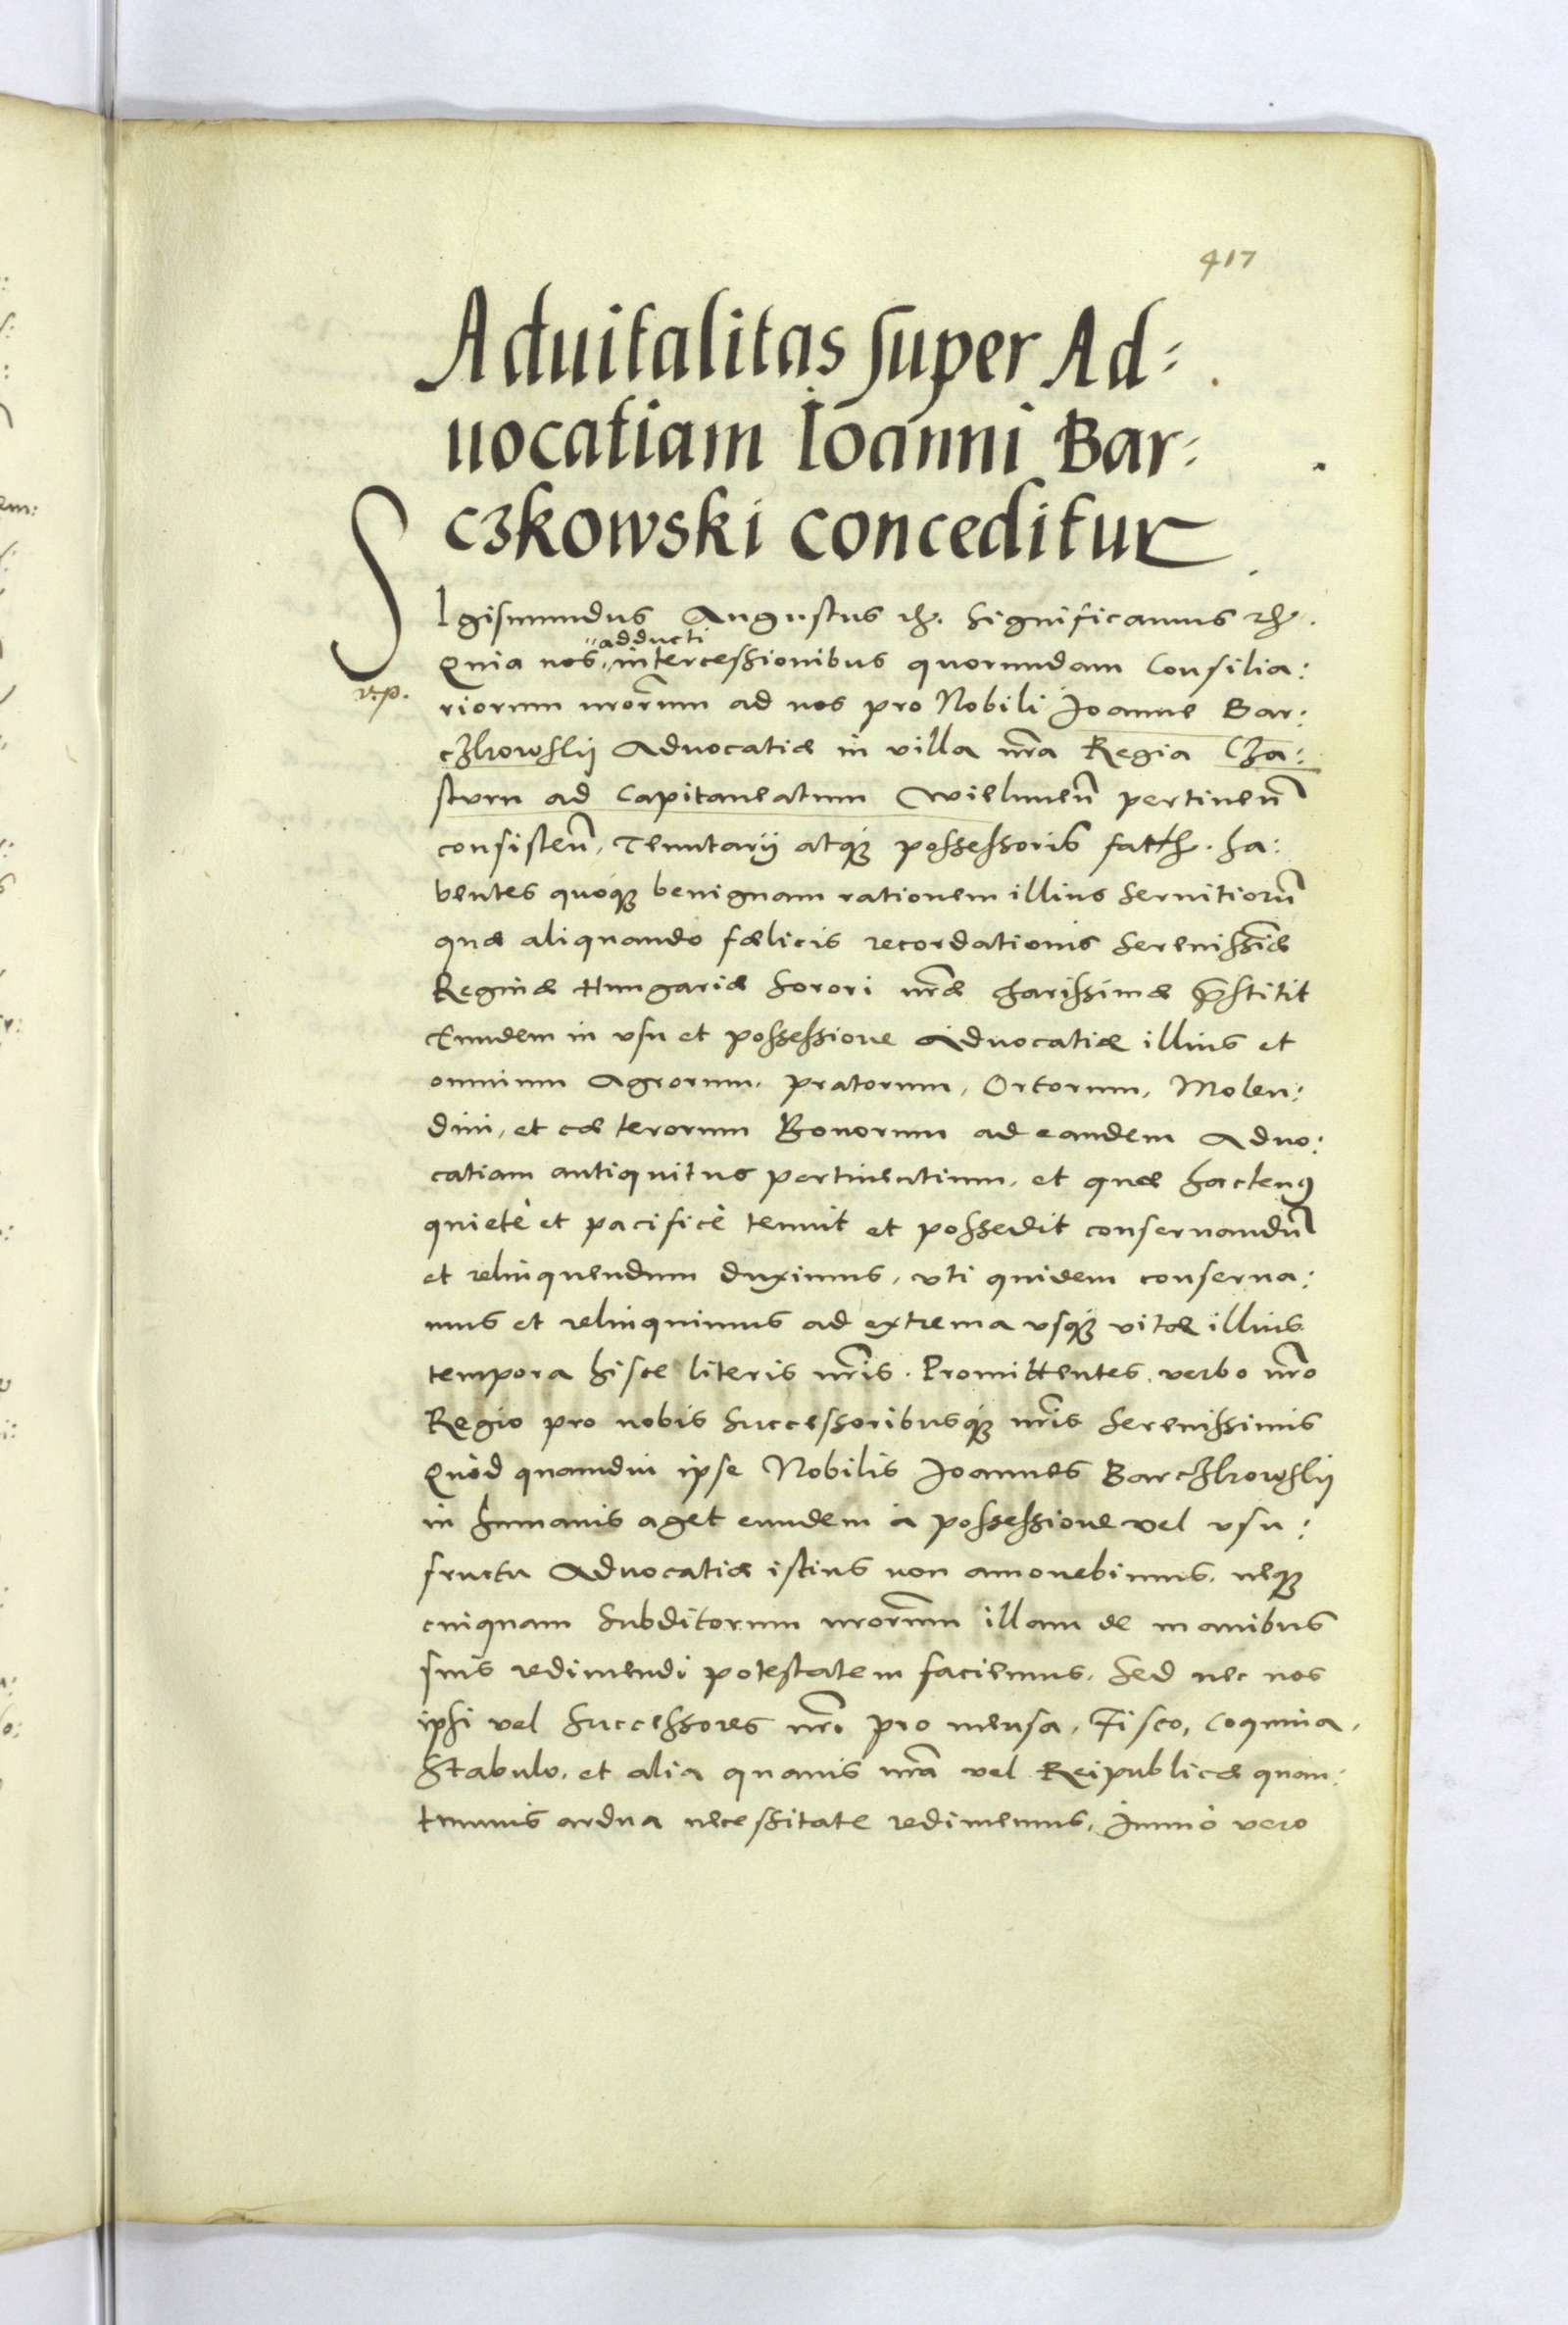 417
Aduitalitas super Ad=
uocatiam Ioanni Bar=
czkowski conceditur
SIgismundus Augustus etc. Significamus etc.
adducti
Quia nos intercessionibus quorumdam Consilia:
v.p.
riorum nrorum ad nos pro Nobili Joanne Bar:
czkowskij Aduocatiæ in villa nra Regia Cza:
sturn ad Capitaneatum Wielunen pertinen
consisten, Tenutarij atque possessoris fatth. ha:
bentes quoque benignam rationem illius seruitiorum
quæ aliquando fœlicis recordationis Serenissimæ
Reginæ Hungariæ Sorori nræ charissimæ præstitit
Eundem in vsu et possessione Aduocatiæ illius et
omnium Agrorum, pratorum, Ortorum, Molen:
dini, et cæterorum Bonorum ad eandem Aduo:
catiam antiquitus pertinentium, et quæ hactenus
quietè et pacificè tenuit et possedit conseruandum
et relinquendum duximus, vti quidem conserua:
mus et relinquimus ad extrema vsque vitæ illius
tempora hisce literis nris. Promittentes verbo nro
Regio pro nobis Successoribusque nris Serenissimis
Quòd quamdiu ipse Nobilis Joannes Barczkowskij
in humanis aget eundem à possessione vel vsu:
fructu Aduocatiæ istius non amouebimus, neque
cuiquam Subditorum nrorum illam de manibus
suis redimendi potestatem faciemus. Sed nec nos
ipsi vel Successores nri pro mensa, Fisco, Coquina,
Stabulo, et alia quauis nra vel Reipublicæ quan:
tumuis ardua necessitate redimemus, Immò vero